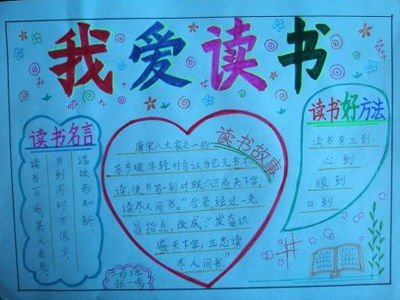 我爱读书
读书名言
温故而知新。
书到用时方恨少
读书百遍,其义自见。
读书故事
唐宋八大家之一的
苏东坡年轻时自认为已无书不
读,便书写一副对联:“识遍天下字,
读尽人间书。”后来经过一老
者指点,改成:“发奋识
遍天下字,立志读
尽人间书。”
读书好方法
读书有三到:
心到
眼到
口到